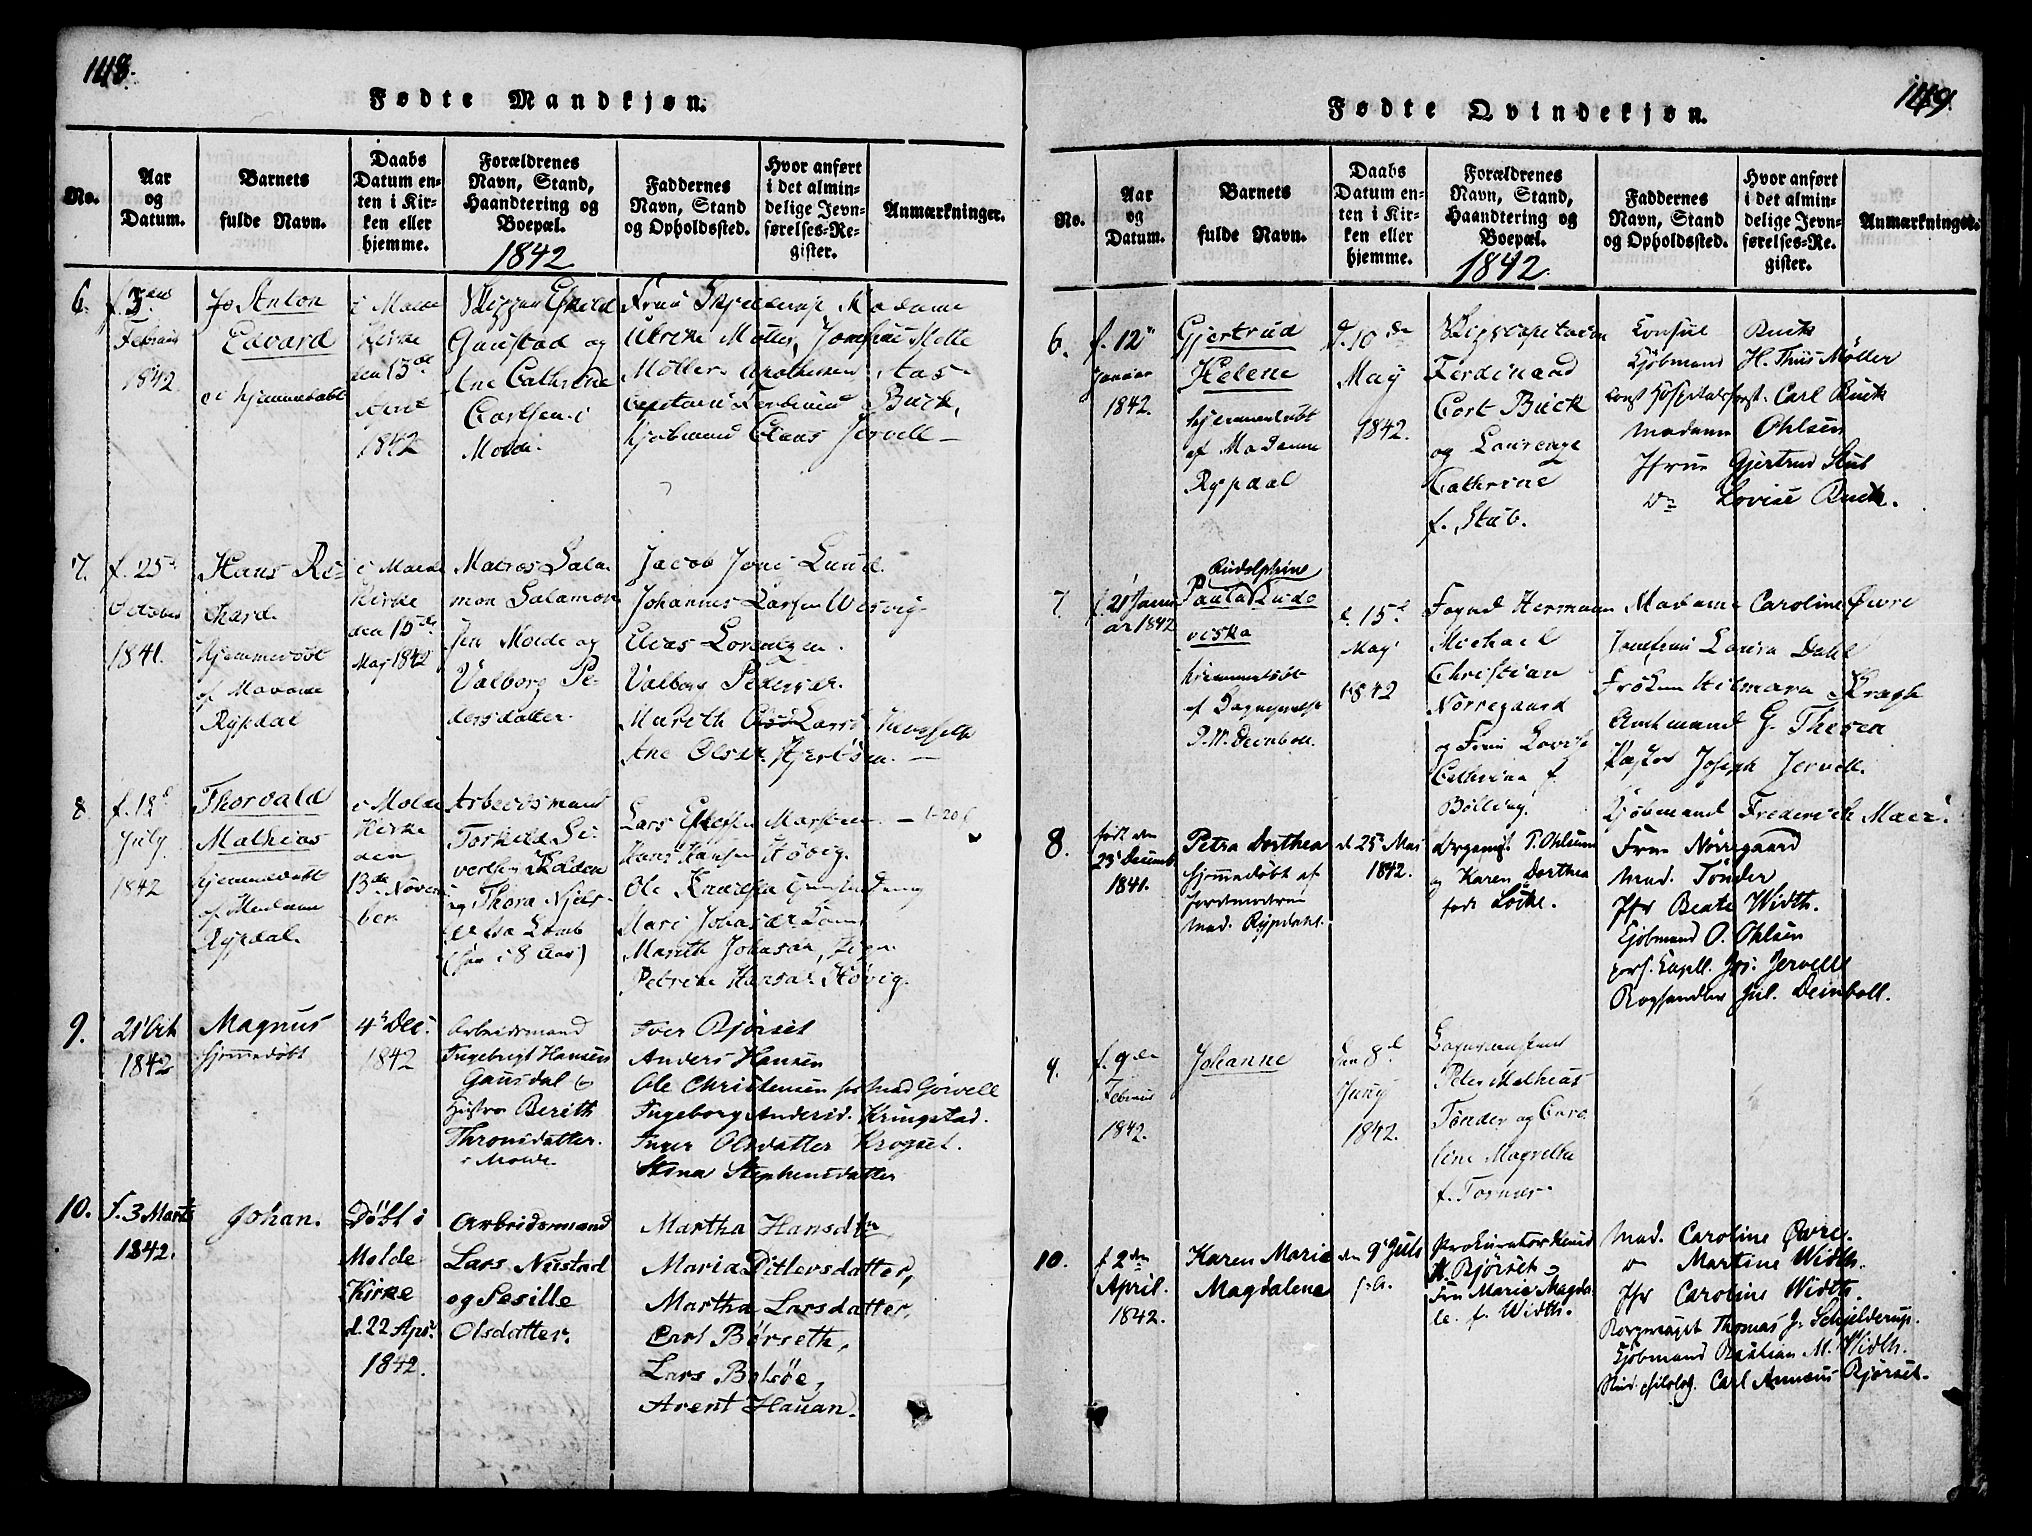 148.
Fødte Mandkjøn.
No.
Aar
og
Datum.
Barnets
fulde Navn.
Daabs
Datum en-
ten i Kir-
ken eller
hjemme.
Forældrenes
Navn, Stand,
Haandtering og
Boepæl.
1842
Faddernes
Navn, Stand
og Opholdssted.
Hvor anført
i det almin-
delige Jevn-
førelses-Re-
gister.
Anmærkninger.
6.
Februar
1842
Anton
Edvard
hjemmedøbt
i Molde
Kirke
den 13de
1842
Skipper Eskild
Gaustad og
Ane Cathrine
Carlsen i
Molde.
Frue Madame
Ulrike Møller, Jomfrue Mette
Møller Aas
Buck,
Kjøbmand Claus Jervell
7.
f. 25
October
1841.
Hans Ri-
chard
hjemmedøbt
af Madame
Rypdal
i Molde
Kirke
den 15de
May 1842
Matros Salo
mon Salamon
sen Molde og
Valborg Pe-
dersdatter.
Jacob Lund.
Johannes Larsen
Elias Lorentzen.
Valborg
Mareth Lars
Ane Olsen Hjertøen.
8.
f. 12
July
1842
Thorvald
Mathias
hjemmedøbt
af Madame
Rypdal.
i Molde
Kirke
den
13de Novem
ber
Arbeidsmand
Torkild Si-
vertsen
og Thora
(i 8 Aar)
Lars
Hans Hansen Høvig.
Ole Knudsen
Mari
Mareth Johnsen,
Petrine Høvig.
9.
21 Oct
1842
Magnus
hjemmedøbt
4de Dec.
1842
Arbeidsmand
Ingebrigt Hansen
Gausdal &
Hustro Berith
Thronsdatter.
i Molde.
Iver Bjørset
Anders Hansen
Ole Christensen
Ingeborg Andersd. Kringstad.
Inger Olsdatter Krogset.
Stina Stephensdatter
10.
f. 3 Marts
1842.
Johan.
Døbt i
Molde
Kirke
d. 22 Apr.
1842.
Arbeidsmand
Lars Nustad
og Sesille
Olsdatter.
Martha Hansdtr
Maria Ditlersdatter,
Martha Larsdatter,
Carl Børseth,
Lars Bolsøe,
Arent Hauan.
149
Fødte Qvindekjøn.
No.
Aar
og
Datum.
Barnets
fulde Navn.
Daabs
Datum en-
ten i Kir-
ken eller
hjemme.
Forældrenes
Navn, Stand,
Haandtering og
Boepæl.
1842.
Faddernes
Navn, Stand
og Opholdssted.
Hvor anført
i det almin-
delige Jevn-
førelses-Re-
gister.
Anmærkninger.
6.
f. 12
Januar
1842.
Gjertrud
Helene
hjemmedøbt
af Madame
Rypdal
d. 10de
May
1842.
Skipscapitain
Ferdinand
Cort Buck
og Laurenze
Cathrine
f. Stub.
Consul Buck
Kjøbmand H. Thiis Møller
Carl Buck
Madame Ohlsen
Jfrue Gjertrud Stub
do Lovise Buck.
7.
f. 21 Janu
ar 1842
Rudolphine
Paula Ludo
viska
hjemmedøbt
af Sognepræst
P. W. Deinboll.
d. 15de
May
1842
Foged Hermann
Michael
Christian
Nørregaard
og Frue Lovise
Cathrina f.
Bölling.
Madame Caroline Øvre
Jomfrue Laura Dahl
Frøken Hilmara Kragh
Amtmand G. Thesen
Pastor Joseph Jervell.
Kjøbmand Frederich Maer.
8.
født den
23 Decemb
1841.
Petra Dorthea
hjemmedøbt af
Jordmoderen
Mad. Rypdahl.
d. 25 Mai
1842.
Organist P. Ohlsen
og Karen Dorthea
født Løcke.
Frue Nørregaard
Mad. Tønder
Jfr Beate Width.
Kjøbmand O. Ohlsen
pers. Capell. Jos. Jervell
Boghandler Jul. Deinboll.
9.
f. 9de
Februar
1842.
Johanne
den 8de
Juny
1842.
Peter Mathias
Tønder og Caro
line Magretha
f. Tornøe.
10.
f 2den
April.
1842.
Karen Marie
Magdalene
den 9 Juli
s. A.
Prokurator Knud
N. Bjørset og
Fru Marie Magda
le. f. Width.
Mad. Caroline Øvre.
do Martine Width.
Jfr Caroline Width.
Borgermester Thomas J. Schjelderup.
Kjøbmand Bastian M. Width.
Stud. philolog. Carl Annæus Bjørset.